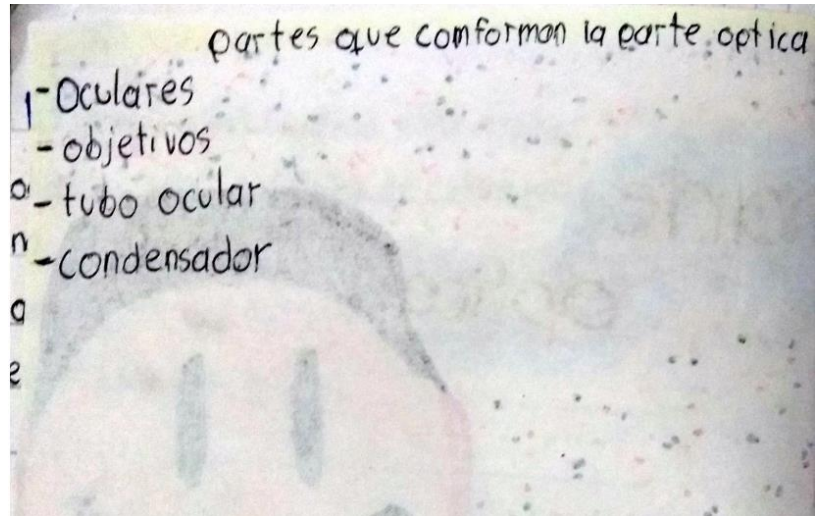 partes que comforman la parte optica
- Oculares
- objetivos
- tubo ocular
- condensador